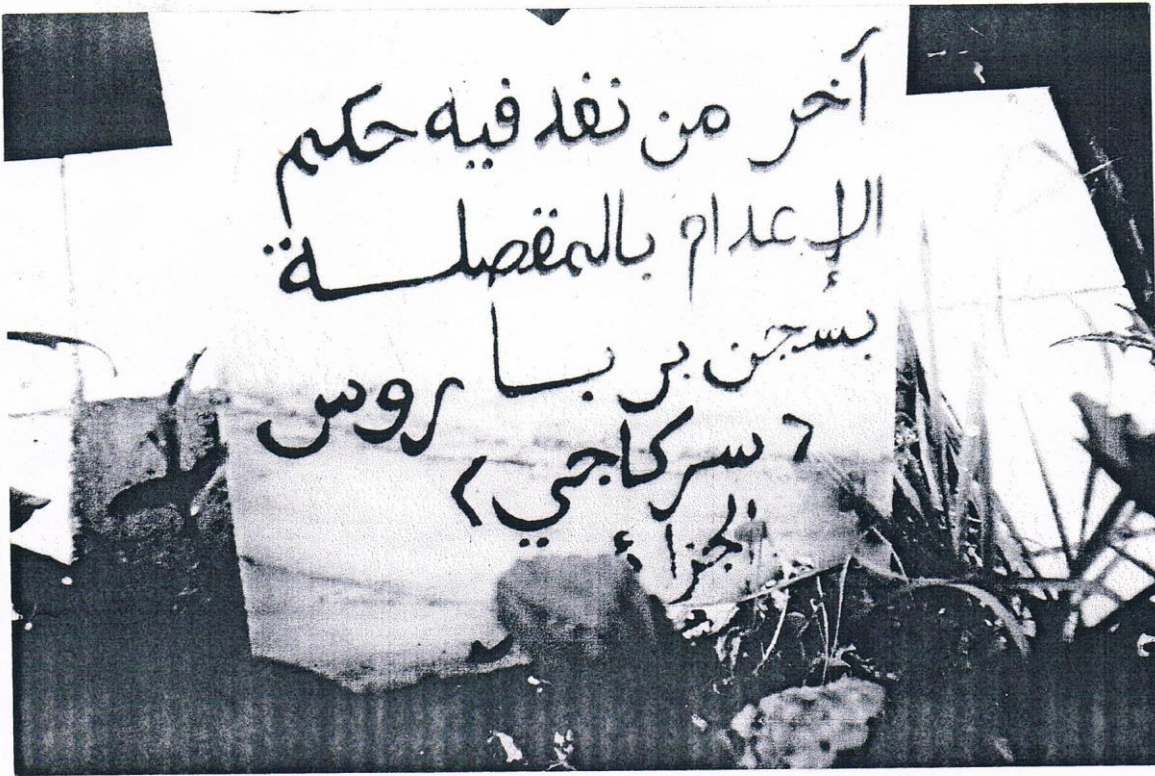 آخر من نفد فيه حكم
الإعدام بالمقصلة
بسجن بربا روس
< سركاجي >